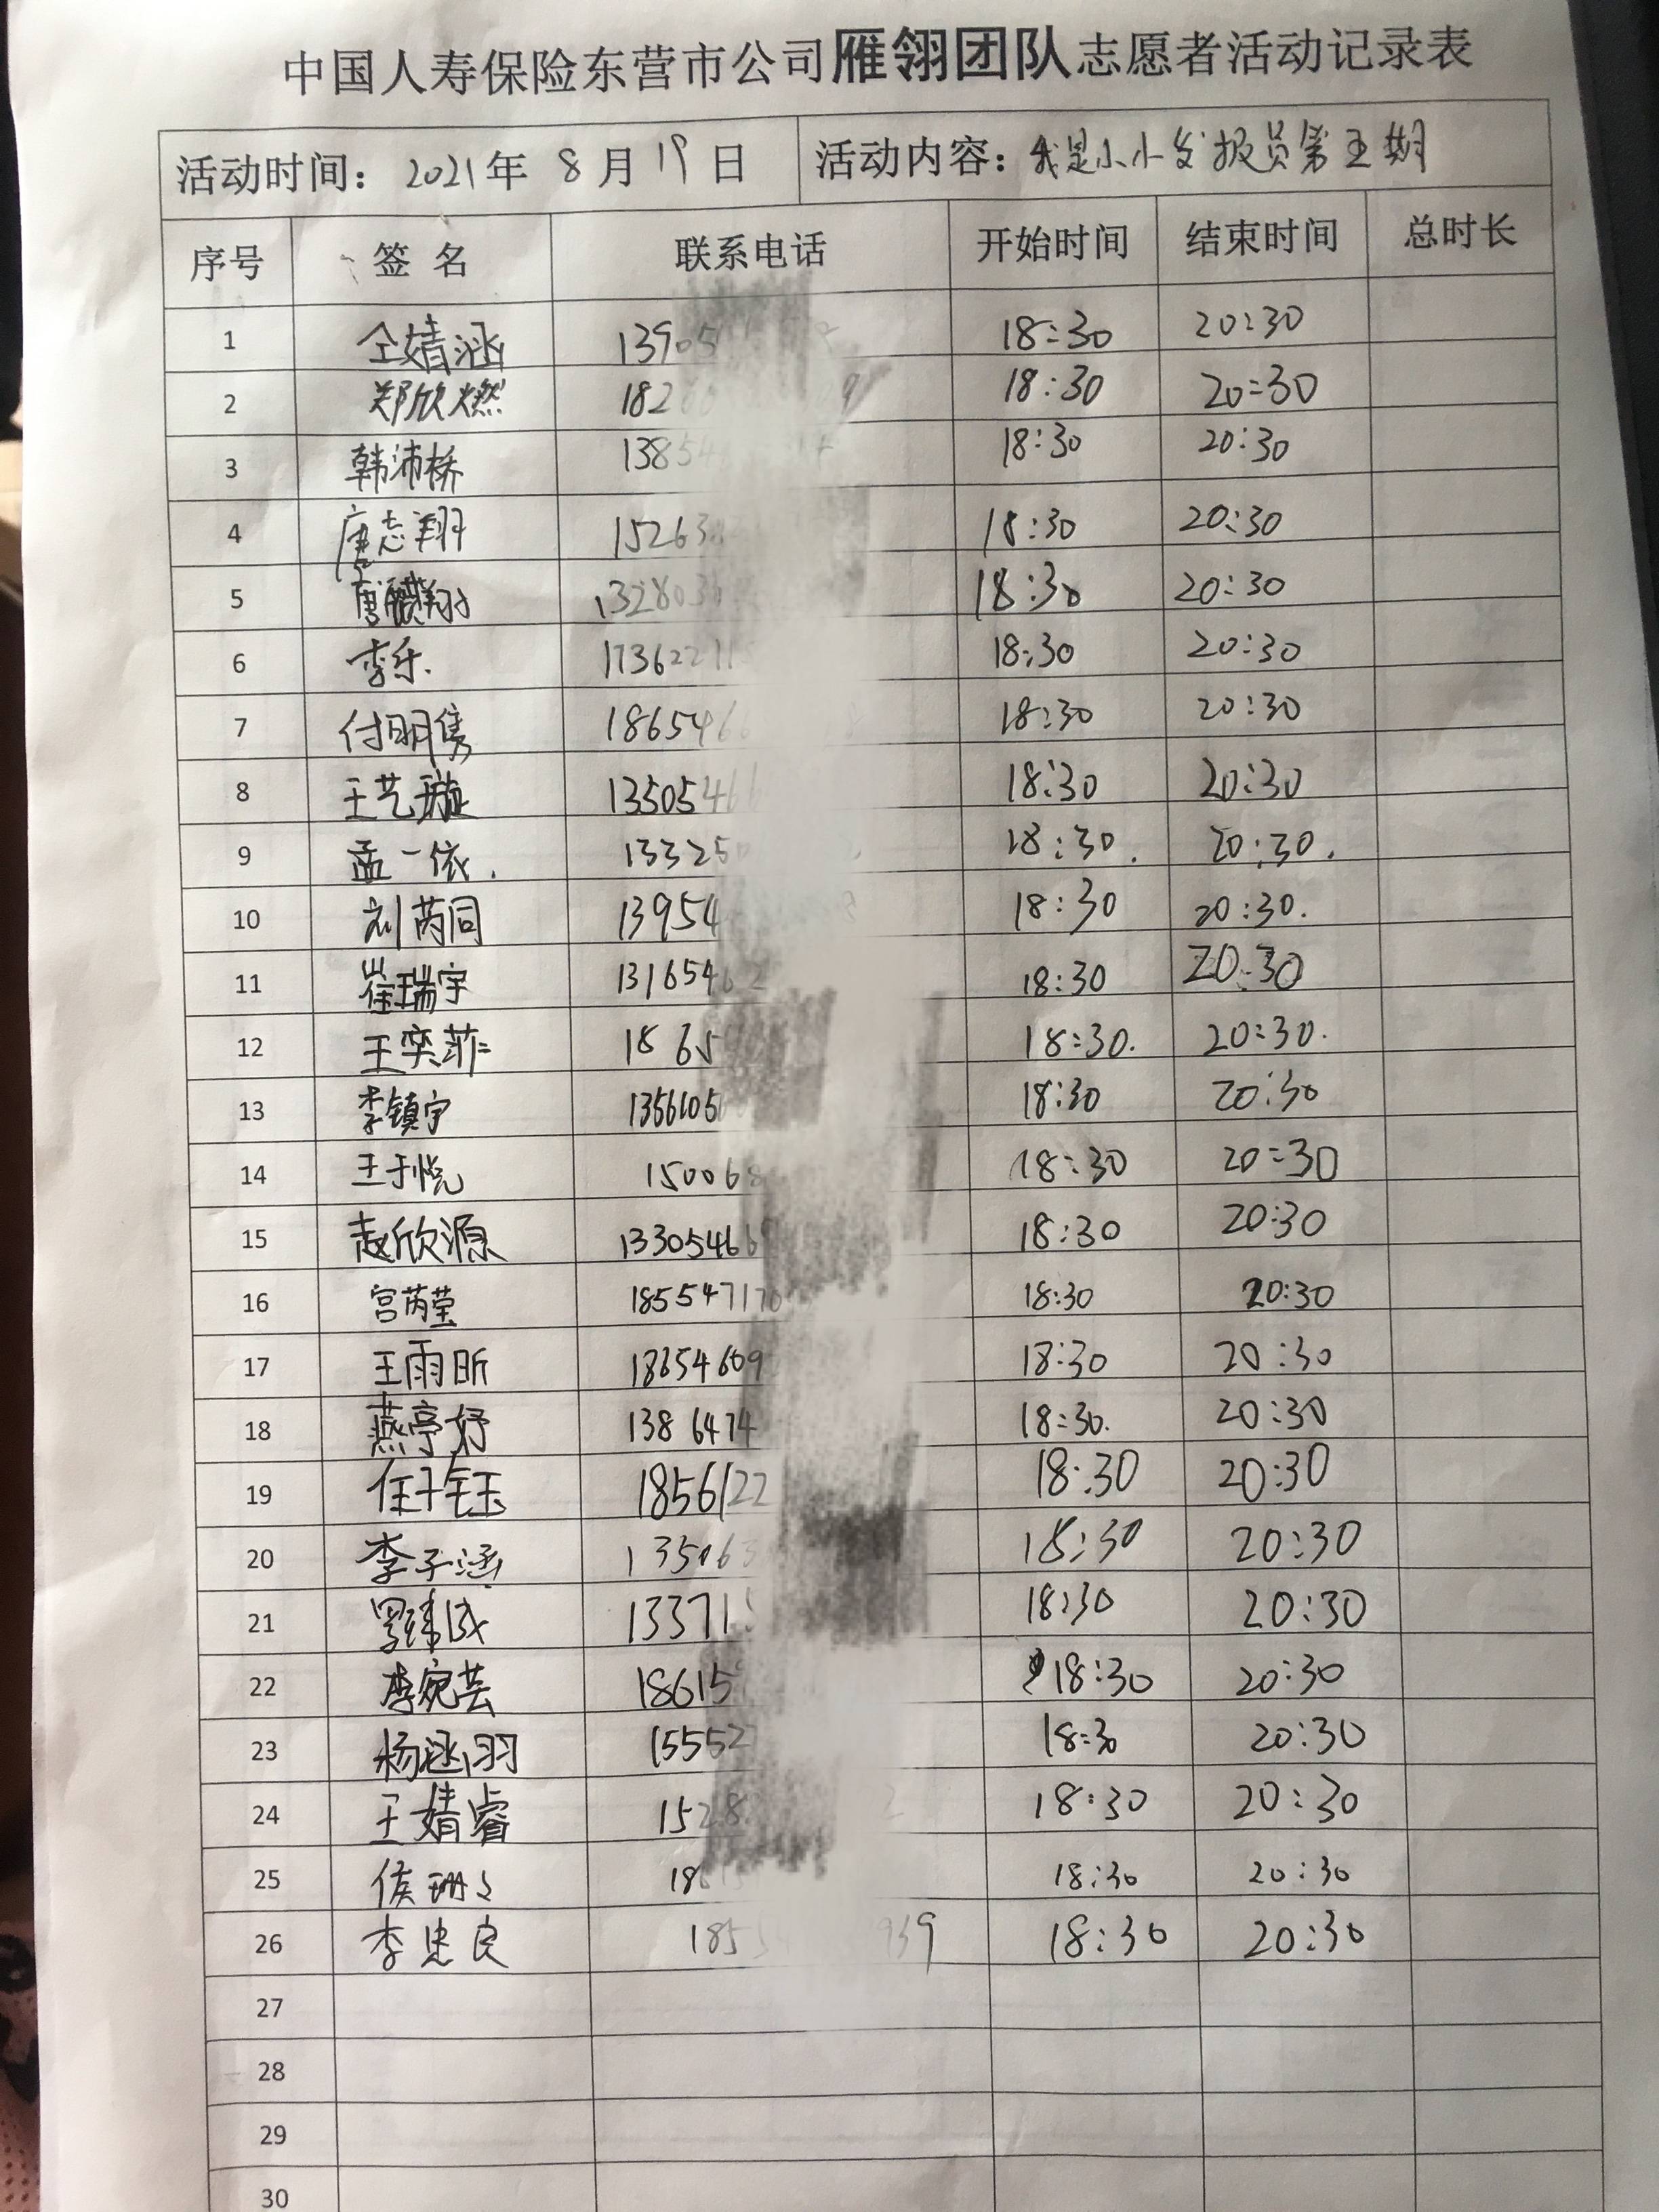 中国人寿保险东营市公司雁翎团队志愿者活动记录表
活动时间：2021年 8月19日 活动内容：我是小小发报员第五期
序号 签 名 联系电话 开始时间 结束时间 总时长
1 仝婧涵 13905 18:30 20:30
2 郑欣燃 182 18:30 20:30
3 韩沛桥 13854 18:30 20:30
4 唐志翔 15263 18:30 20:30
5 132803 18:30 20:30
6 李乐. 1736227 18:30 20:30
7 付明隽 1865466 18:30 20:30
8 王艺璇 1350546 18:30 20:30
9 孟一依. 13325 18:30. 20:30.
10 刘芮同 13954 18:30 20:30.
11 崔瑞宇 1316546 18:30 20:30
12 王奕菲 1865 18:30. 20:30.
13 李镇宇 1356105 18:30 20:30
14 王于悦 150068 18:30 20:30
15 赵欣源 13305466 18:30 20:30
16 宫芮莹 18554717 18:30 20:30
17 王雨昕 18654609 18:30 20:30
18 燕亭妤 1386474 18:30. 20:30
19 任子钰 1856122 18:30 20:30
20 李子涵 135063 18:30 20:30
21 13371 18:30 20:30
22 李宛芸 18615 18:30 20:30
23 杨涵羽 15552 18:30 20:30
24 王婧睿 1528 18:30 20:30
25 侯珊 18 18:30 20:30
26 李忠良 185 939 18:30 20:30
27
28
29
30